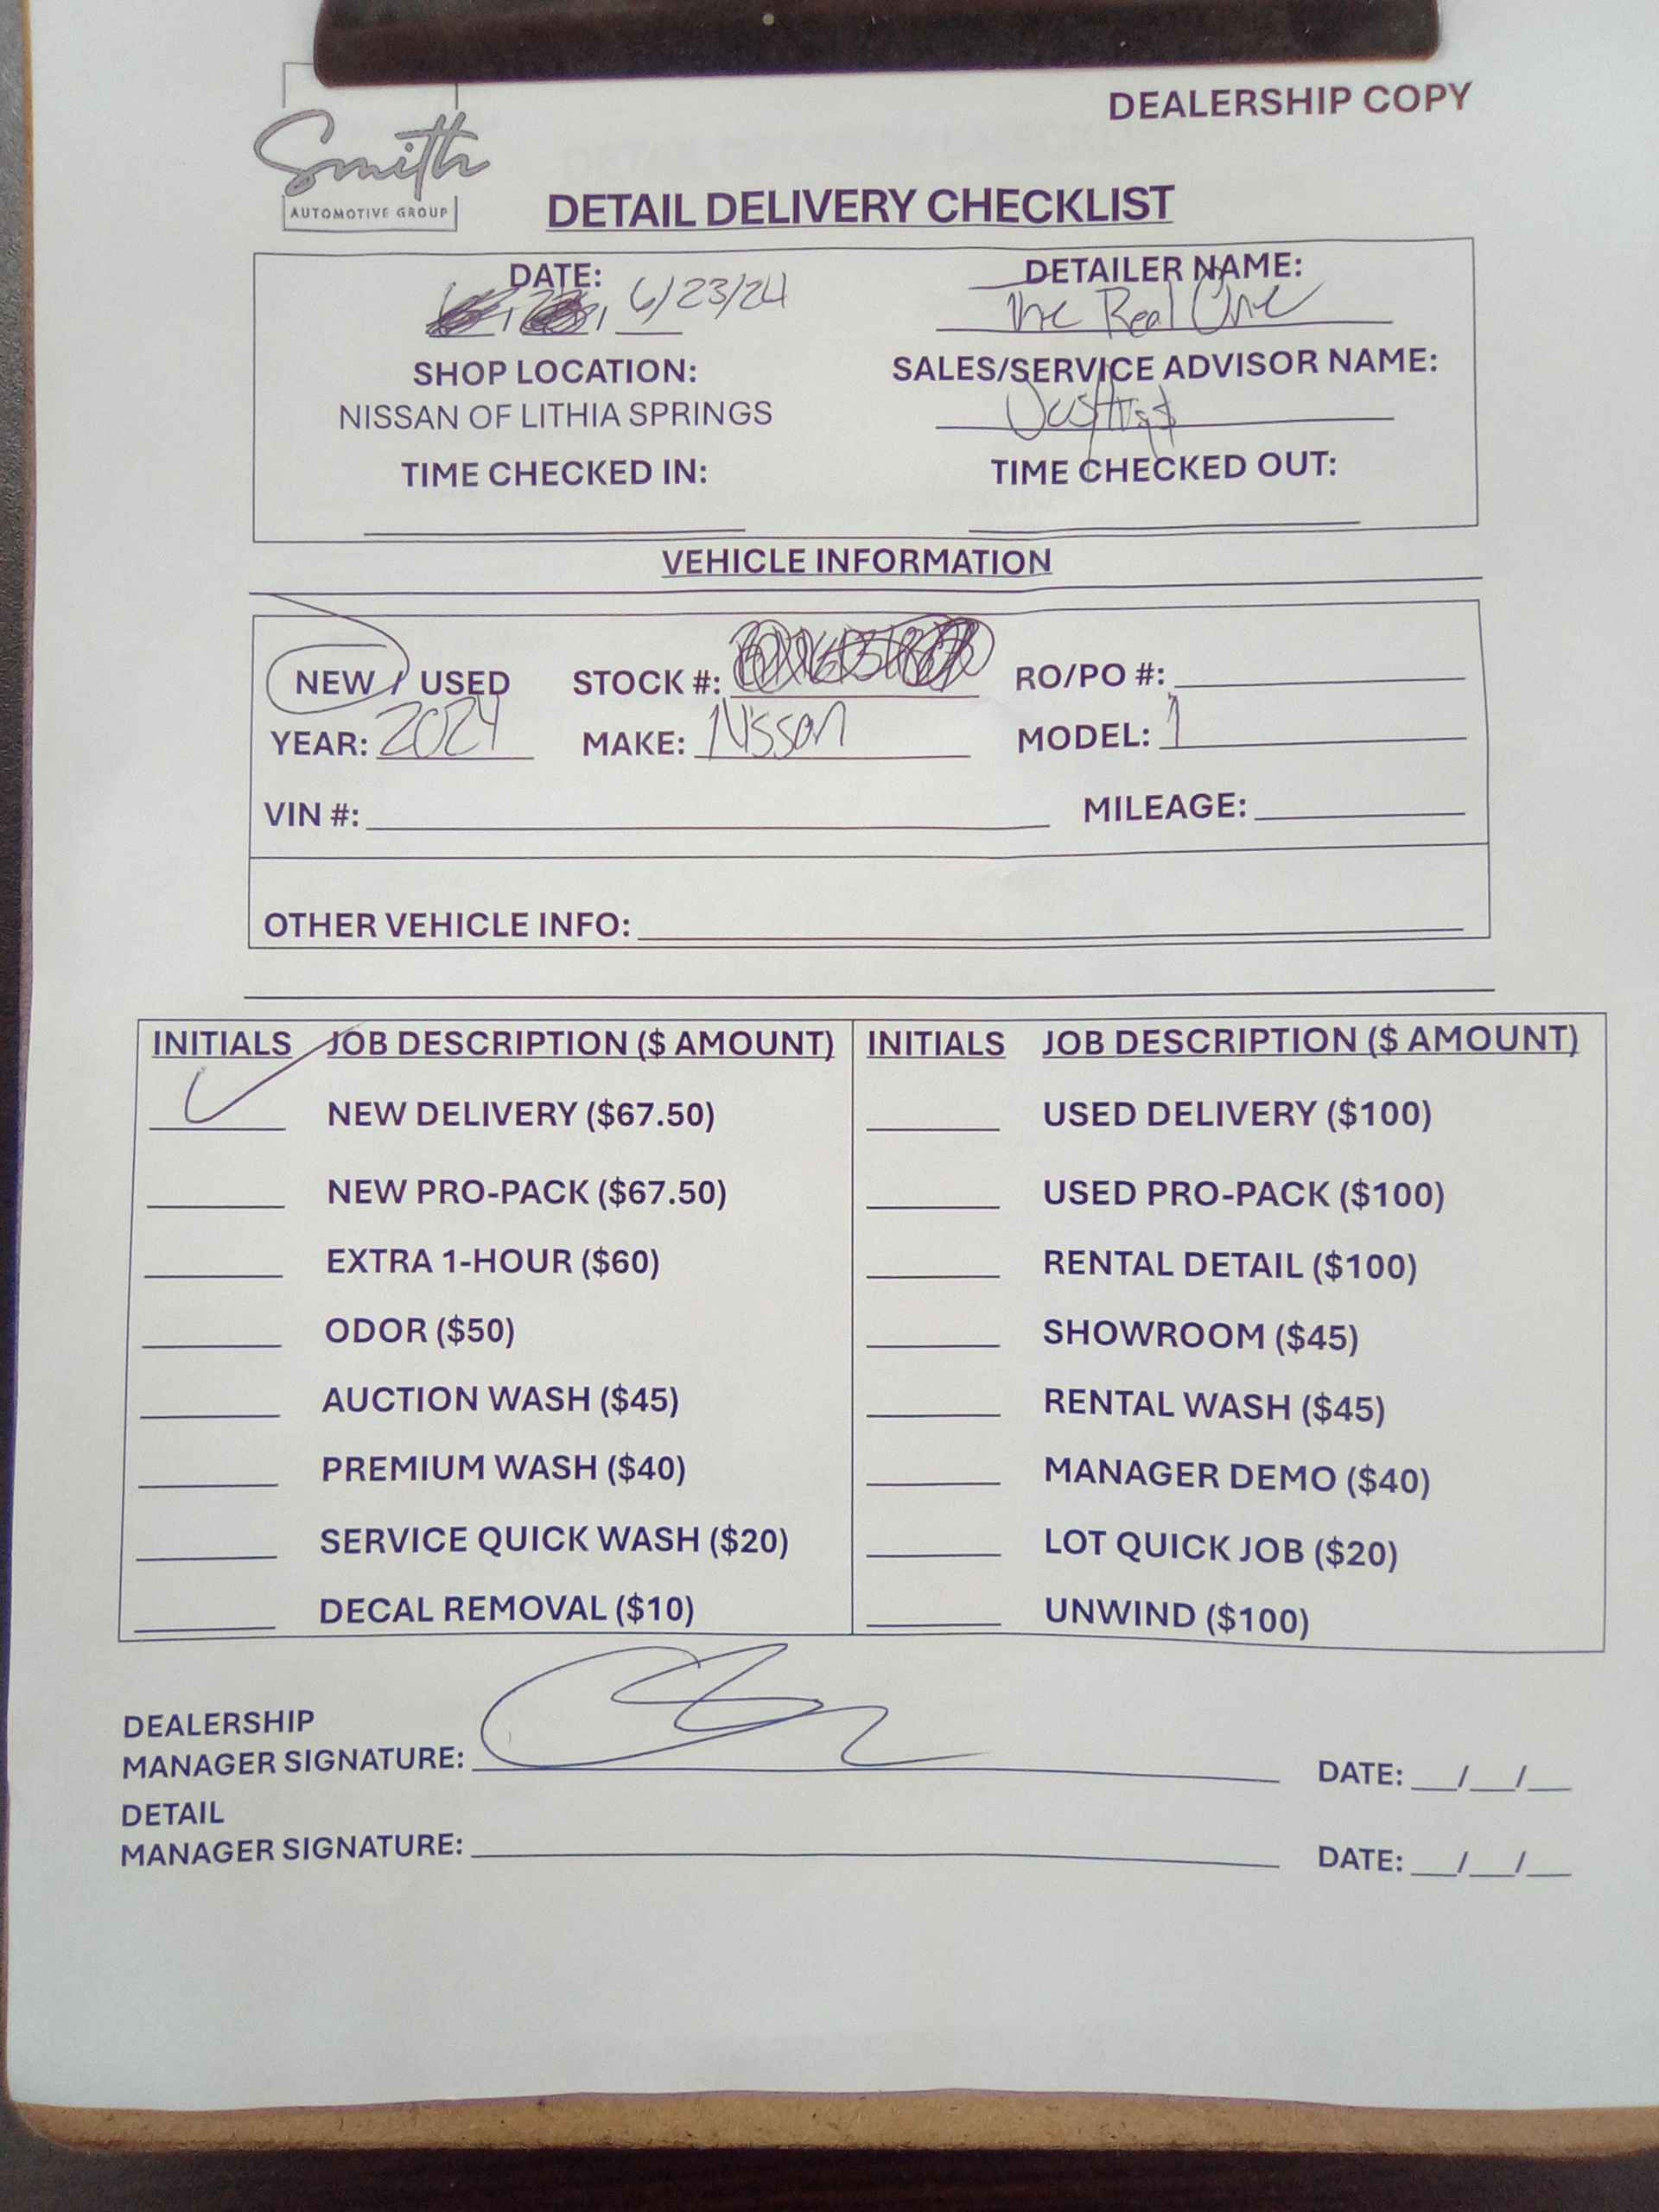 DEALERSHIP COPY
Smith
AUTOMOTIVE GROUP
DETAIL DELIVERY CHECKLIST
DATE: 6/23/24
DETAILER NAME: The Real One
SHOP LOCATION:
NISSAN OF LITHIA SPRINGS
SALES/SERVICE ADVISOR NAME:
TIME CHECKED IN:
TIME CHECKED OUT:
VEHICLE INFORMATION
NEW / USED STOCK #: RO/PO #:
YEAR: 2024 MAKE: Nissan MODEL:
VIN #: MILEAGE:
OTHER VEHICLE INFO:
INITIALS JOB DESCRIPTION ($ AMOUNT) INITIALS JOB DESCRIPTION ($ AMOUNT)
NEW DELIVERY ($67.50) USED DELIVERY ($100)
NEW PRO-PACK ($67.50) USED PRO-PACK ($100)
EXTRA 1-HOUR ($60) RENTAL DETAIL ($100)
ODOR ($50) SHOWROOM ($45)
AUCTION WASH ($45) RENTAL WASH ($45)
PREMIUM WASH ($40) MANAGER DEMO ($40)
SERVICE QUICK WASH ($20) LOT QUICK JOB ($20)
DECAL REMOVAL ($10) UNWIND ($100)
DEALERSHIP
MANAGER SIGNATURE: DATE: __/__/__
DETAIL
MANAGER SIGNATURE: DATE: __/__/__